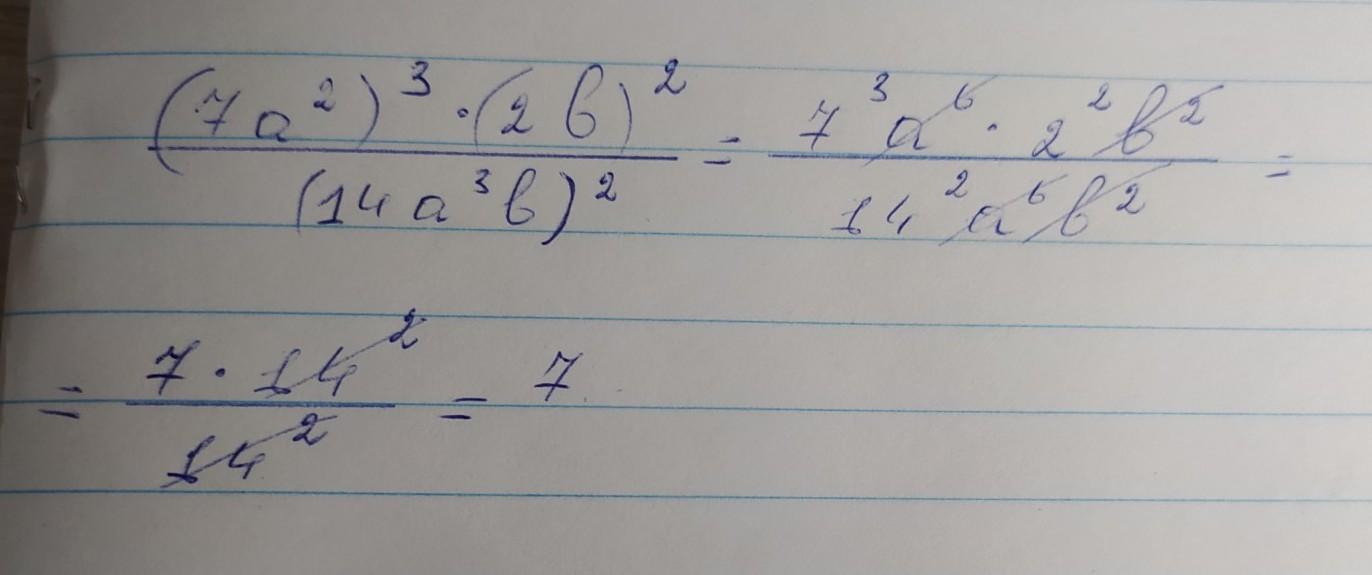 (7a²)³ · (2b)² / (14a³b)² = 7³a⁶ · 2²b² / 14²a⁶b² =
= 7 · 14² / 14² = 7